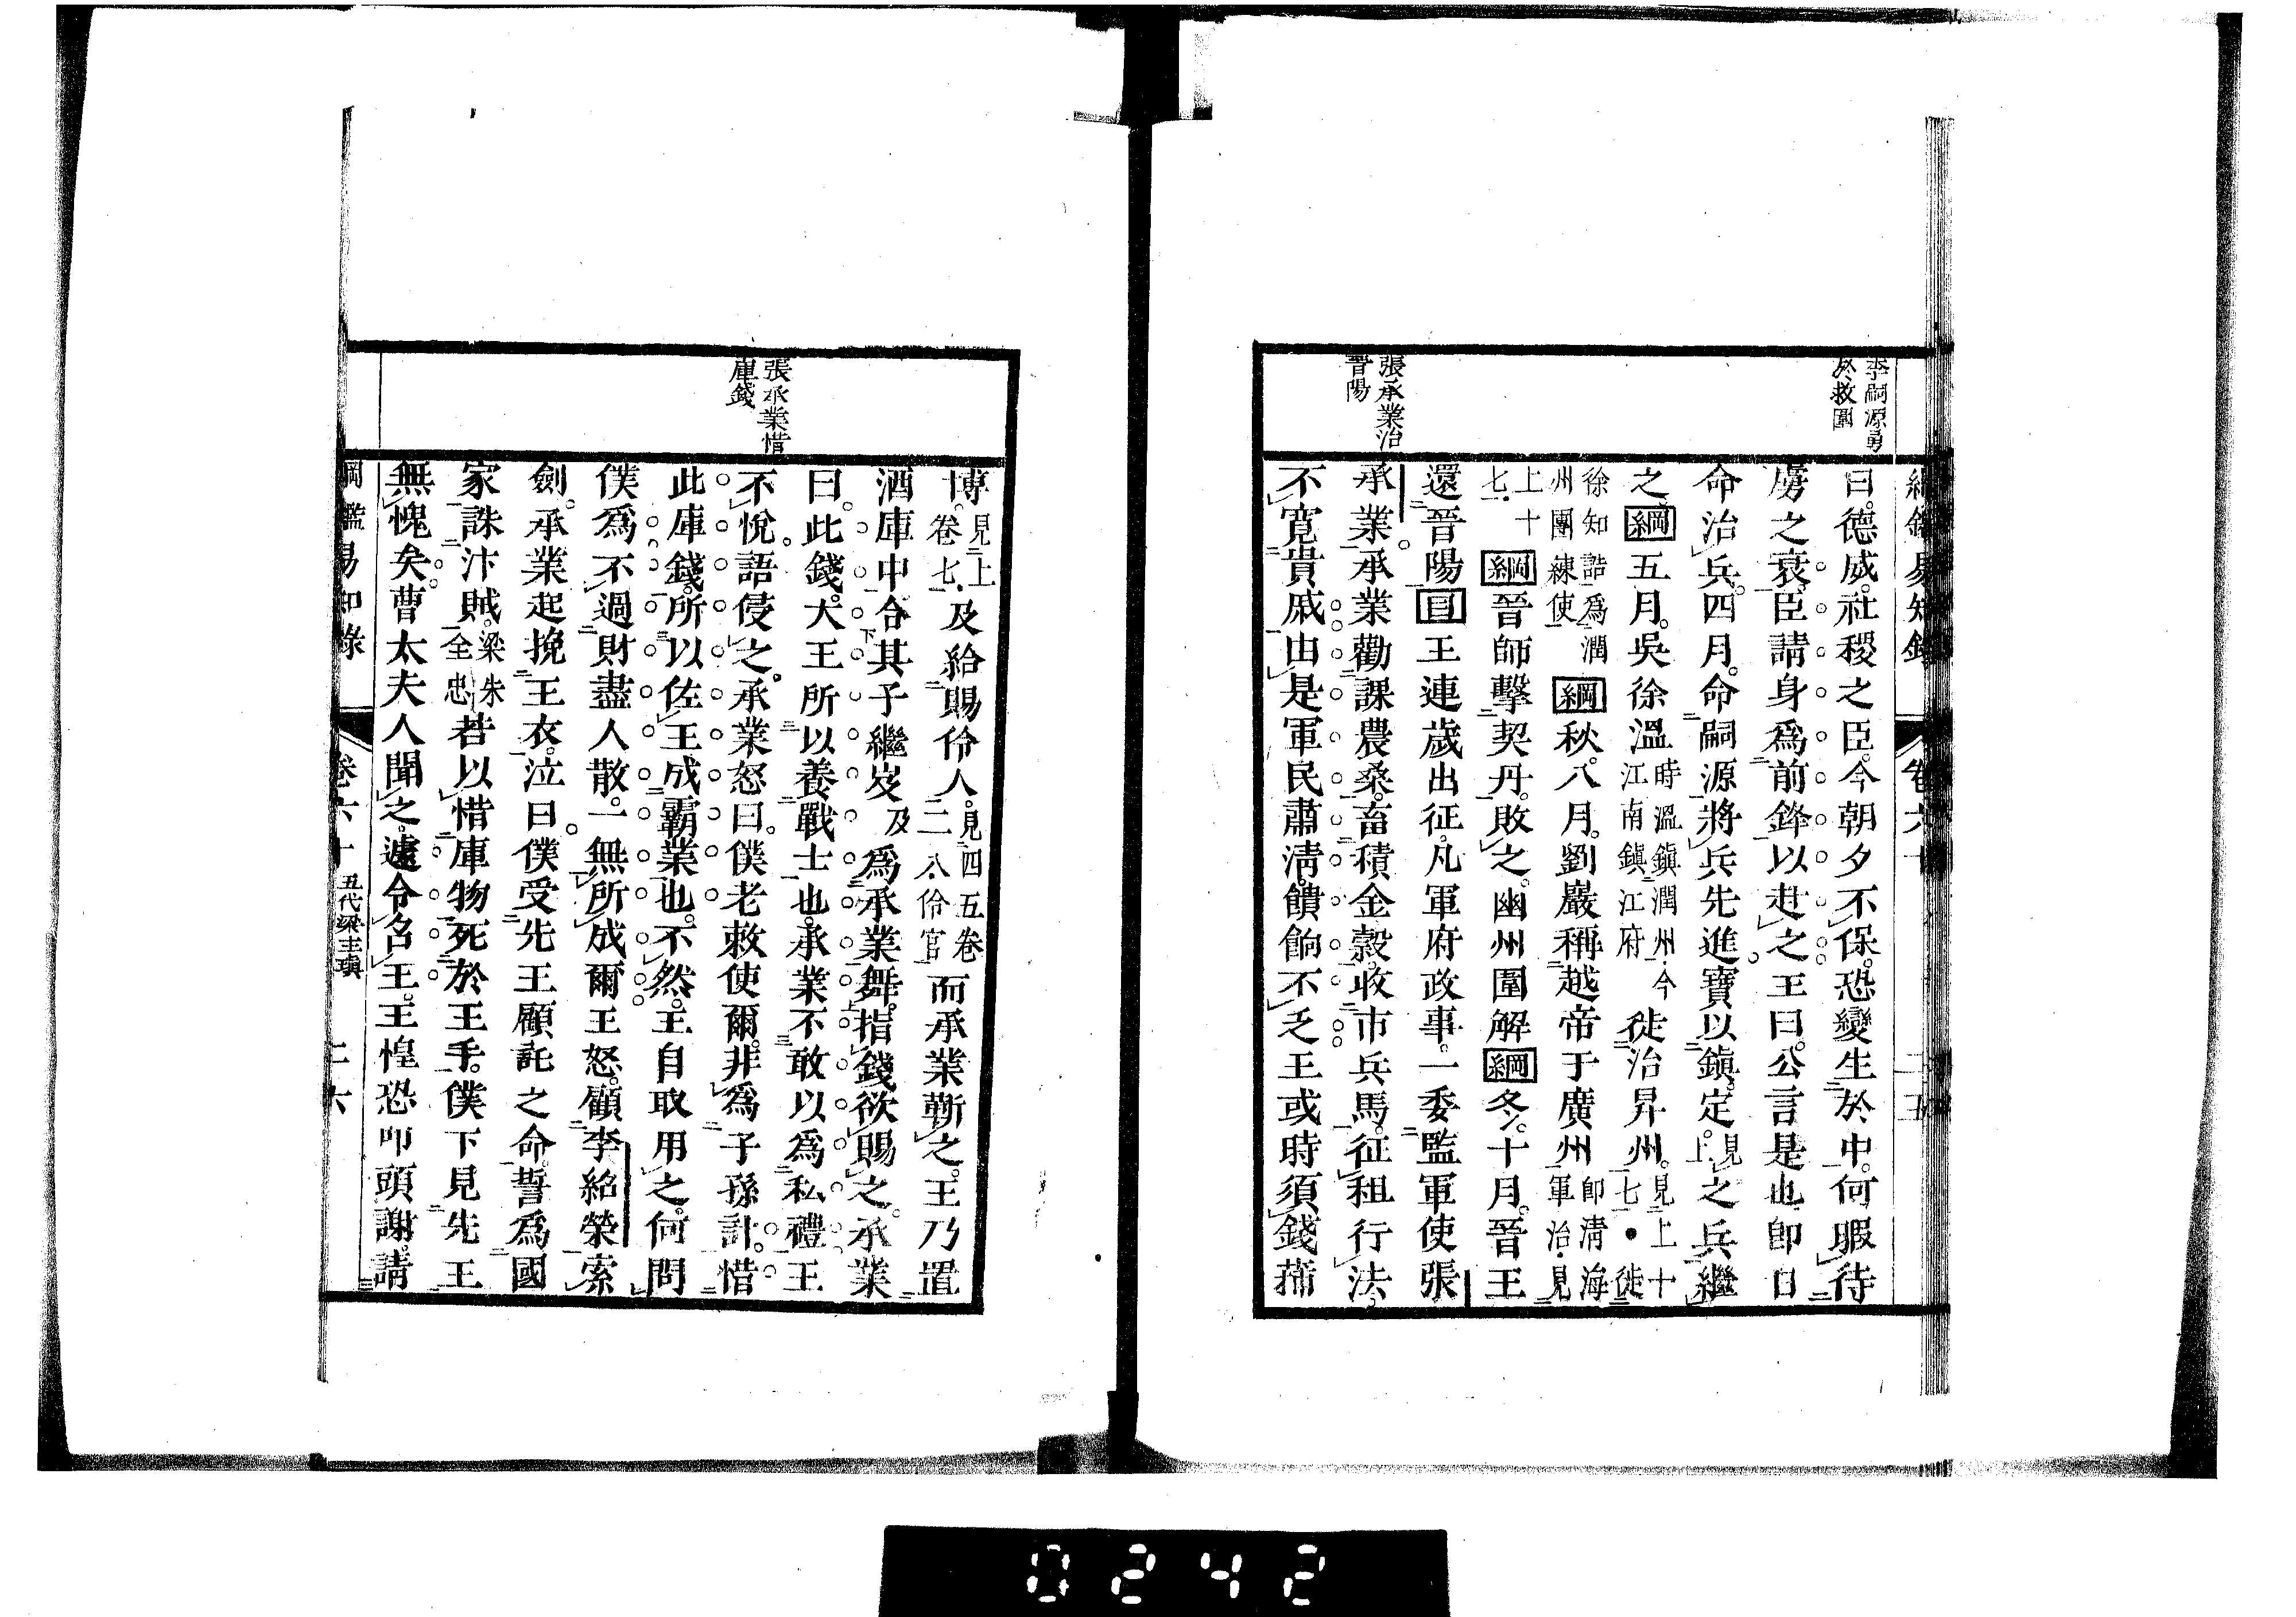 李嗣源勇
於救圍
張承業治
晉陽
綱鑑易知錄 卷六十 二五
曰。德威。社稷之臣。今朝夕不保。恐變生於中。何暇待
虜之衰。臣請身爲前鋒以赴之王曰。公言是也卽日
命治兵。四月。命嗣源將兵先進寶以鎭。定。見上之兵繼
之綱五月。吳徐溫時溫鎭潤州今江南鎭江府徙治昇州。見上十七●徙
徐知誥爲潤州團練使綱秋。八月。劉巖稱越帝于廣州卽淸海軍治見
上十七綱晉師擊契丹。敗之。幽州圍解綱冬。十月。晉王
還晉陽目王連歲出征。凡軍府政事。一委監軍使張
承業承業勸課農桑。畜積金穀。收市兵馬。征租行法。
不寬貴戚由是軍民肅淸。饋餉不乏王或時須錢蒱
張承業惜
庫錢
博見上十卷七及給賜伶人。見四五卷二八伶官而承業靳之。王乃置
酒庫中令其子繼岌及爲承業舞。指錢欲賜之。承業
曰。此錢。大王所以養戰士也。承業不敢以爲私禮王
不悅語侵之。承業怒曰。僕老敕使爾。非爲子孫計。惜
此庫錢。所以佐王成霸業也。不然。王自取用之。何問
僕爲不過財盡人散。一無所成爾王怒。顧李紹榮索
劍。承業起挽王衣。泣曰。僕受先王顧託之命。誓爲國
家誅汴賊。梁朱全忠若以惜庫物死於王手。僕下見先王
無愧矣。曹太夫人聞之。遽令召王。王惶恐叩頭謝。請
綱鑑易知錄 卷六十 五代梁主瑱 二六
0242